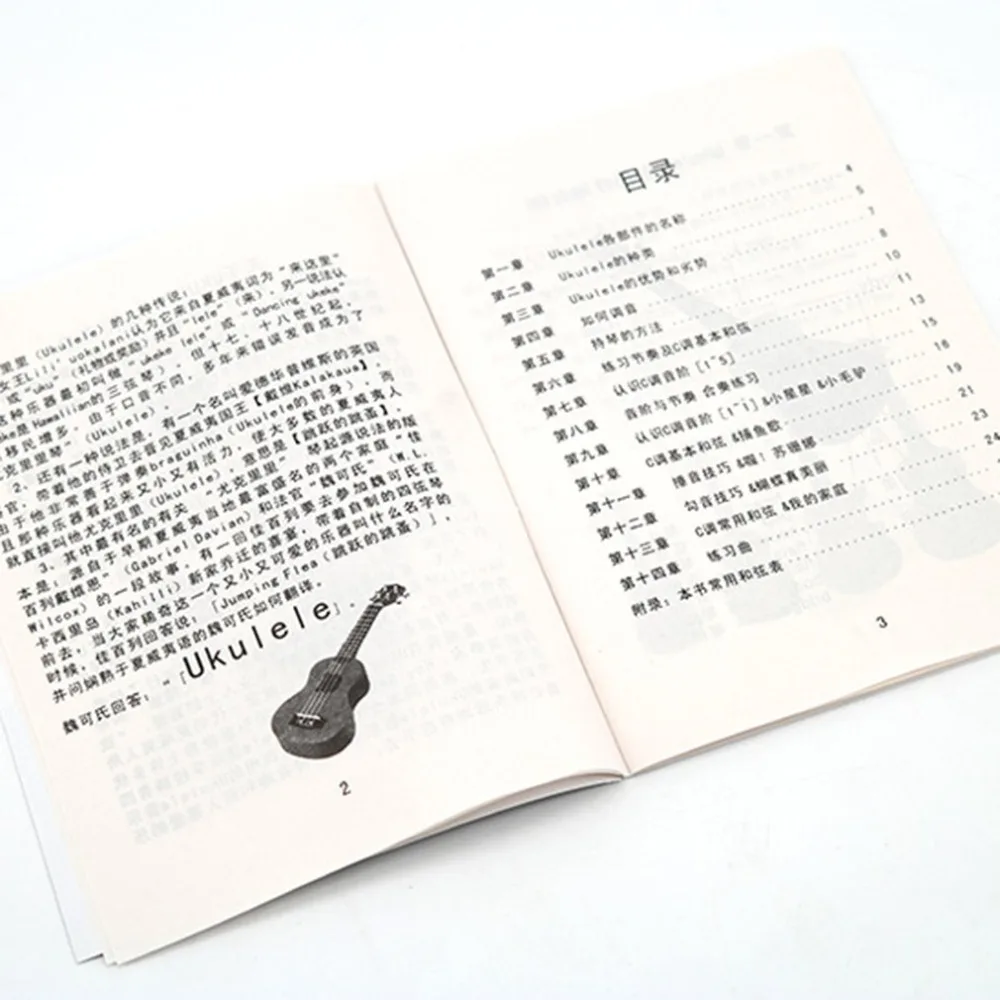 里里（Ukulele）的几种传说：
女王Lili' uokalani认为它来自夏威夷词为“来这里”
或“uku”（礼物或奖励）并且“lele”（来）。另一说法认
这种乐器最初叫做“ukeke lele”或“Dancing ukeke”
ke是Hawaiian的三弦琴）。但十七，十八世纪起，
移民增多，由于口音不同，多年来错误发音成为了
克里里琴”（Ukulele）。
2、还有一种说法是，有一个名叫爱德华普维斯的英国
官，带着他的侍卫去晋见夏威夷国王【戴维Kalakaua】，
由于他非常善于弹奏braguinha（Ukulele的前身），而
且那种乐器看起来又小又有活力，使大多数的夏威夷人
就直接叫他尤克里里（Ukulele），意思是【跳跃的跳蚤】。
3、其中最有名的有关“尤克里里”琴起源说法的版
本是，源自于早期夏威夷当地最富盛名的两个家庭“佳
百列戴维恩”（Gabriel Davian）和法官“魏可氏”（W.L.
Wilcox）的一段故事，有一回佳百列要去参加魏可氏在
卡西里岛（Kahilli）新家乔迁的喜宴，带着自制的四弦琴
前去，当大家稀奇这一个又小又可爱的乐器叫什么名字的
时候，佳百列回答说：「Jumping Flea（跳跃的跳蚤）」，
并问娴熟于夏威夷语的魏可氏如何翻译。
魏可氏回答：“「Ukulele」.
2
目录
第一章 Ukulele各部件的名称 4
第二章 Ukulele的种类 5
第三章 Ukulele的优势和劣势 7
第四章 如何调音 8
第五章 持琴的方法 10
第六章 练习节奏及C调基本和弦 11
第七章 认识C调音阶 [1~5] 13
第八章 音阶与节奏 合奏练习 15
第九章 认识C调音阶 [1~i] &小星星 &小毛驴 16
第十章 C调基本和弦 &捕鱼歌 19
第十一章 捶音技巧 &喔！苏珊娜 21
第十二章 勾音技巧 &蝴蝶真美丽 23
第十三章 C调常用和弦 &我的家庭 24
第十四章 练习曲
附录：本书常用和弦表
3